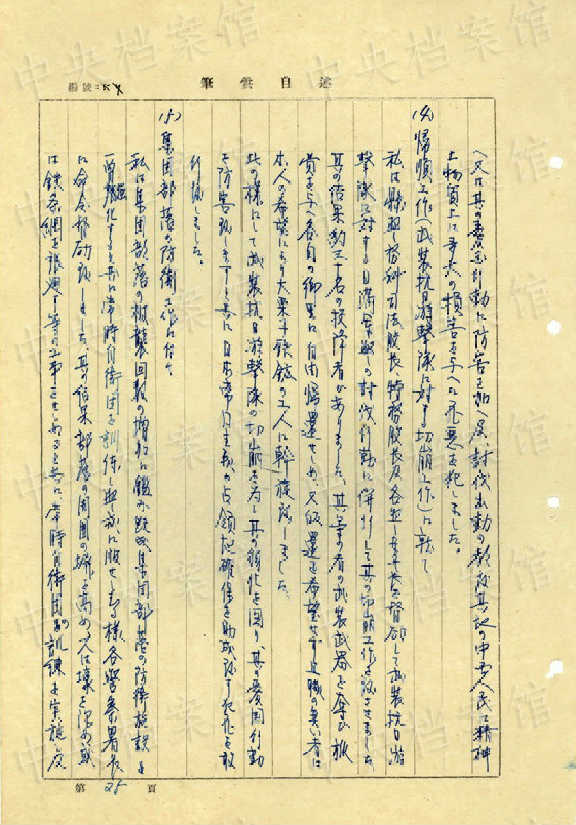 述自雲筆
編號：
(又は其の愛国行動に防害を加へ屍、討伐出動の都度其地の中国人民に精神
上物質上に多大の損害を与へた罪悪を犯しました。
(4) 帰順工作(武装抗日游撃隊に対する切崩工作)に就て
私は縣警務科司法股長、特務股長及各警察署長を督励して武装抗日游
撃隊に対する日満軍警の討伐行動に併行して其の切崩工作を致させました
其の結果約二十名の投降者がありました。其等の者の武装武器を奪ひ旅
費を与へ各自の郷里に自由帰還せしめ、又帰還を希望せず且職の無い者に
本人の希望により大栗子鉄鉱の工人に斡旋致しました
此の様にして武装抗日游撃隊の切崩を為し其の弱化を図り、其の愛国行動
を防害致しますと共に日本帝国主義の占領地確保を助成致す罪悪を敢
行致しました。
(5) 集団部落の防衛工作に付て
私は集団部落の被襲回数の増加に鑑み既成集団部落の防衛施設を
増強化すると共に常時自衛団を訓練し
に命令督励致しました。其の結果部落の周囲の塀を高め、又は壕を深め或
は鉄条網を張廻す等の工事をせしめると共に、常時自衛団の訓練を実施
第 25 頁
中央档案馆